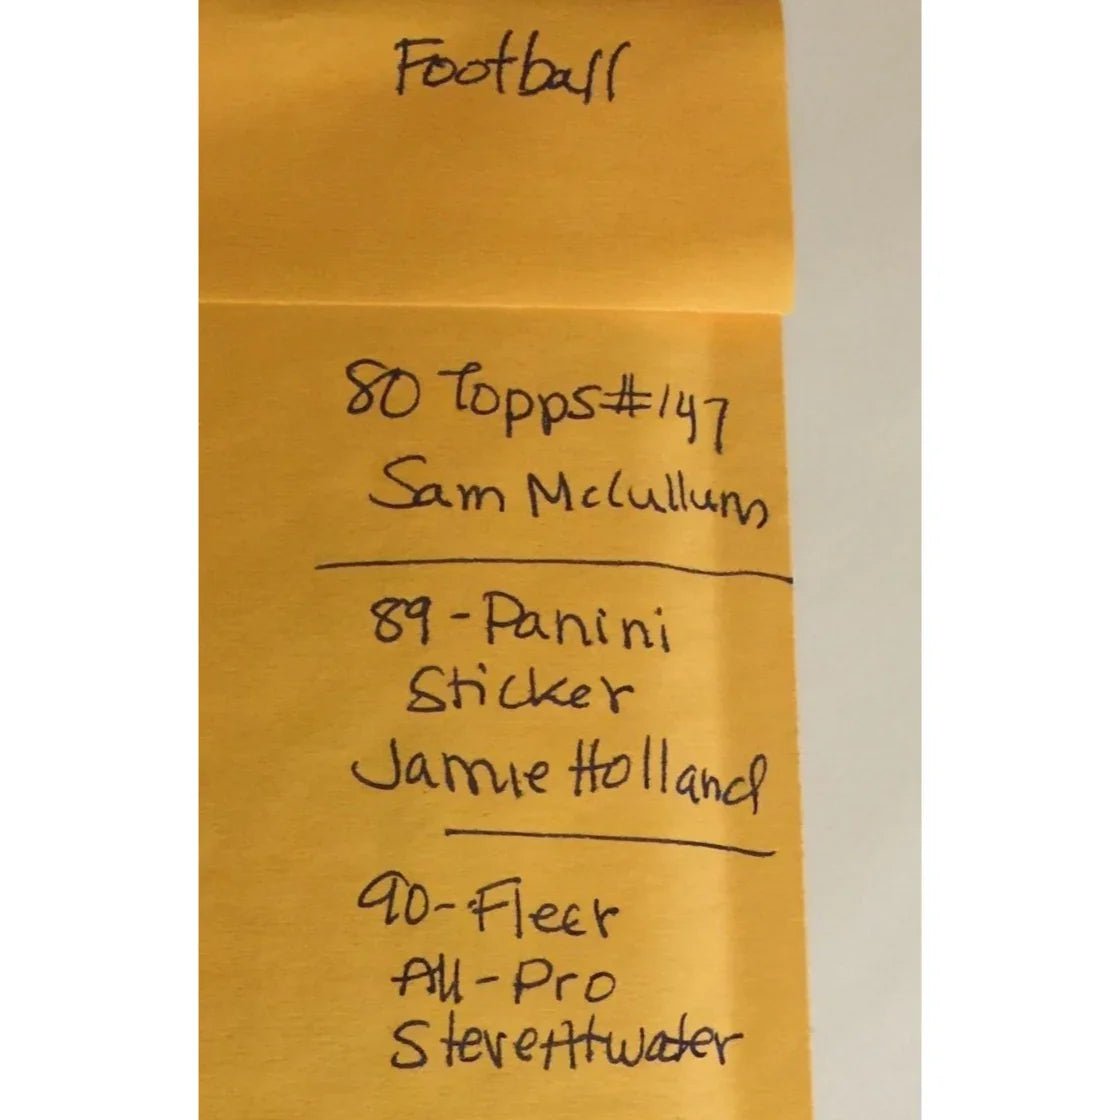 Football
80 Topps #147
Sam McCullum
89 - Panini
Sticker
Jamie Holland
90 - Fleer
All - Pro
Steve Atwater